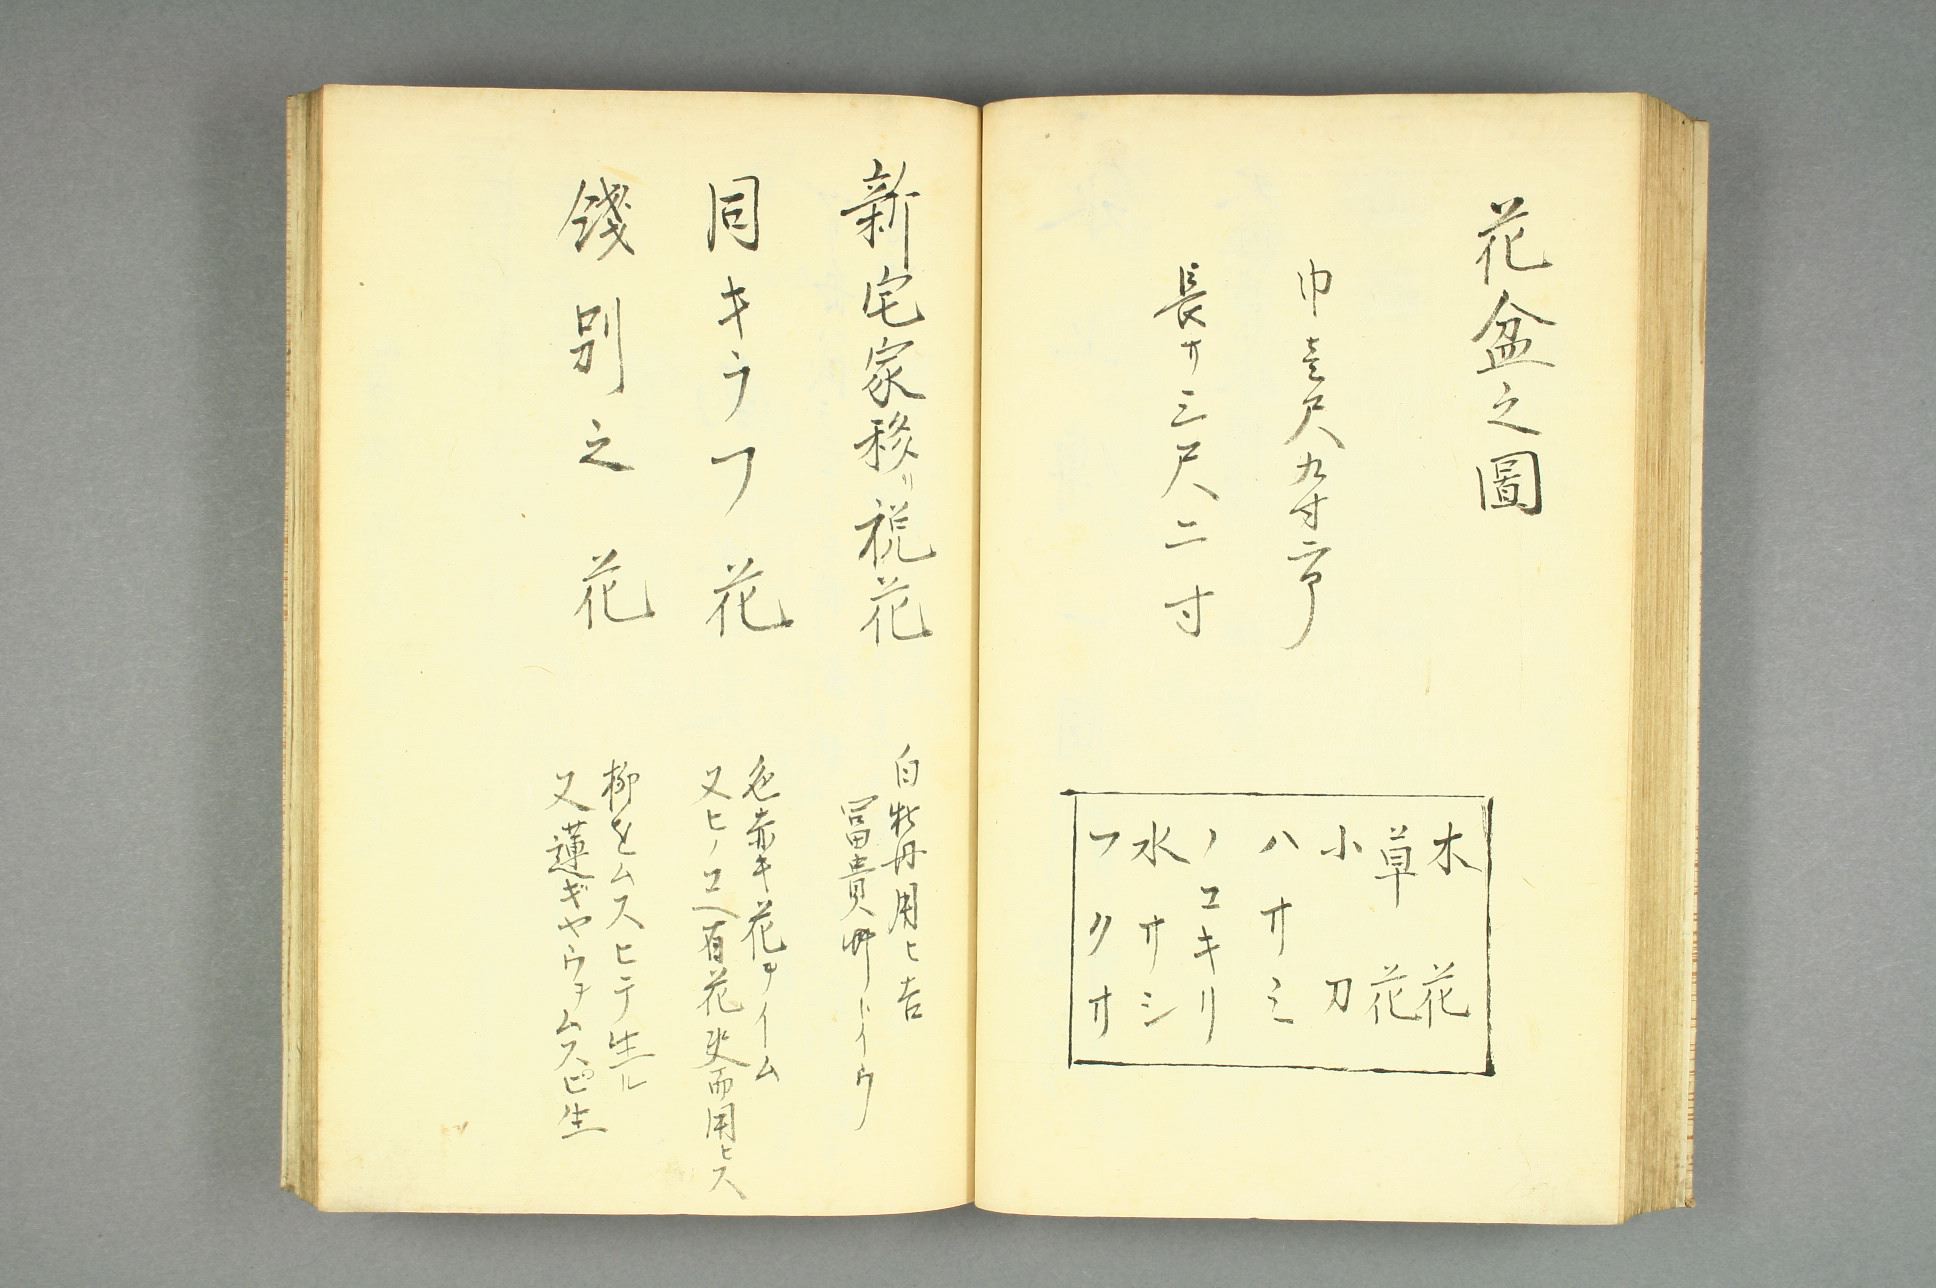 花盆之圖
巾壱尺九寸二分
長サ三尺二寸
木花
草花
小刀
ハサミ
ノコキリ
水サシ
フクサ
新宅家移リ祝花
白牡丹用ヒ吉
冨貴艸トイウ
同キラフ花
色赤キ花ヲイム
又ヒノコヘ有花決而用ヒス
餞別之花
柳をムスヒテ生ル
又蓮ギヤウヲムスビ生